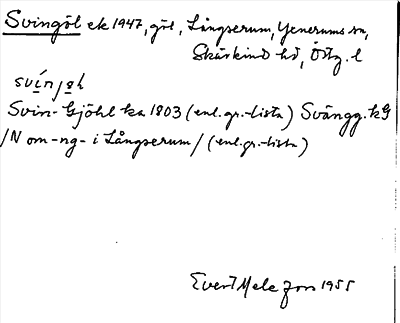 Svingöl ek 1947, göl, Långserum, Yxnerums sn,
Skärkind hd, Östg. l
svínjǝl
Svin-Gjöhl ka 1803 (enl. gr.-lista) Svängg. kG
/N om -ng- i Långserum/ (enl. gr.-lista)
Evert Melefors 1955